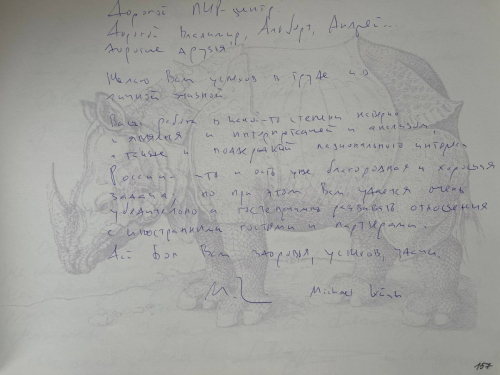 Дорогой ПИР-центр,
Дорогой Владимир, Альберт, Андрей..
дорогие друзья!
Желаю Вам успехов в труде и в
личной жизни.
Ваша работа в какой-то степени
и и интерпретацией и анализом,
а также и поддержкой национального интереса
России — что и есть уже благородная и хорошая
задача, но при этом Вам удается очень
убедительно и гостеприимно развивать отношения
с иностранными гостями и партнерами.
Дай Бог Вам здоровья, успехов, удачи.
Michael
157